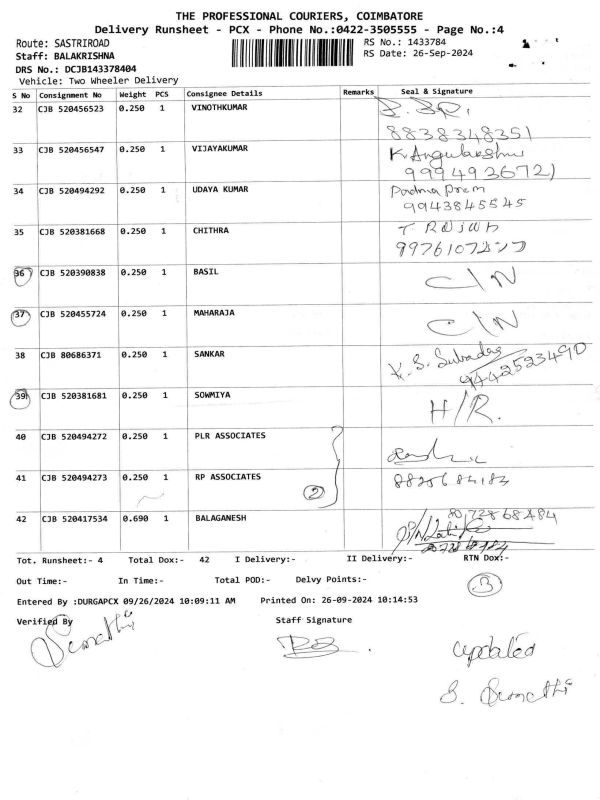 THE PROFESSIONAL COURIERS, COIMBATORE
Delivery Runsheet - PCX - Phone No.:0422-3505555 - Page No.:4
Route: SASTRIROAD RS No.: 1433784
Staff: BALAKRISHNA RS Date: 26-Sep-2024
DRS No.: DCJB143378404
Vehicle: Two Wheeler Delivery
S No Consignment No Weight PCS Consignee Details Remarks Seal & Signature
32 CJB 520456523 0.250 1 VINOTHKUMAR
8838348351
33 CJB 520456547 0.250 1 VIJAYAKUMAR
9994936721
34 CJB 520494292 0.250 1 UDAYA KUMAR Padma Prem
9943845545
35 CJB 520381668 0.250 1 CHITHRA
36 CJB 520390838 0.250 1 BASIL C/N
37 CJB 520455724 0.250 1 MAHARAJA C/N
38 CJB 80686371 0.250 1 SANKAR K. S.
9442523490
39 CJB 520381681 0.250 1 SOWMIYA H/R.
40 CJB 520494272 0.250 1 PLR ASSOCIATES
41 CJB 520494273 0.250 1 RP ASSOCIATES 2
42 CJB 520417534 0.690 1 BALAGANESH
Tot. Runsheet:- 4 Total Dox:- 42 I Delivery:- II Delivery:- RTN Dox:-
3
Out Time:- In Time:- Total POD:- Delvy Points:-
Entered By :DURGAPCX 09/26/2024 10:09:11 AM Printed On: 26-09-2024 10:14:53
Verified By Staff Signature
updated